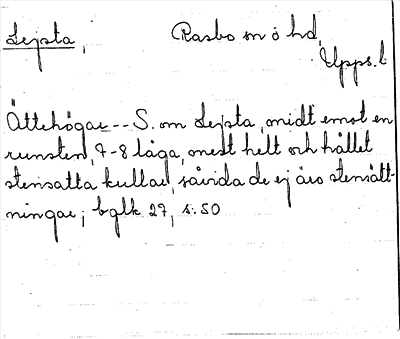 Lejsta, Rasbo sn o hd,
Upps. l.
Ättehögar -- S. om Lejsta, midt emot en
runsten, 7-8 låga, mest helt och hållet
stensatta kullar, såvida de ej äro stensätt-
ningar; bglk 27, s. 50